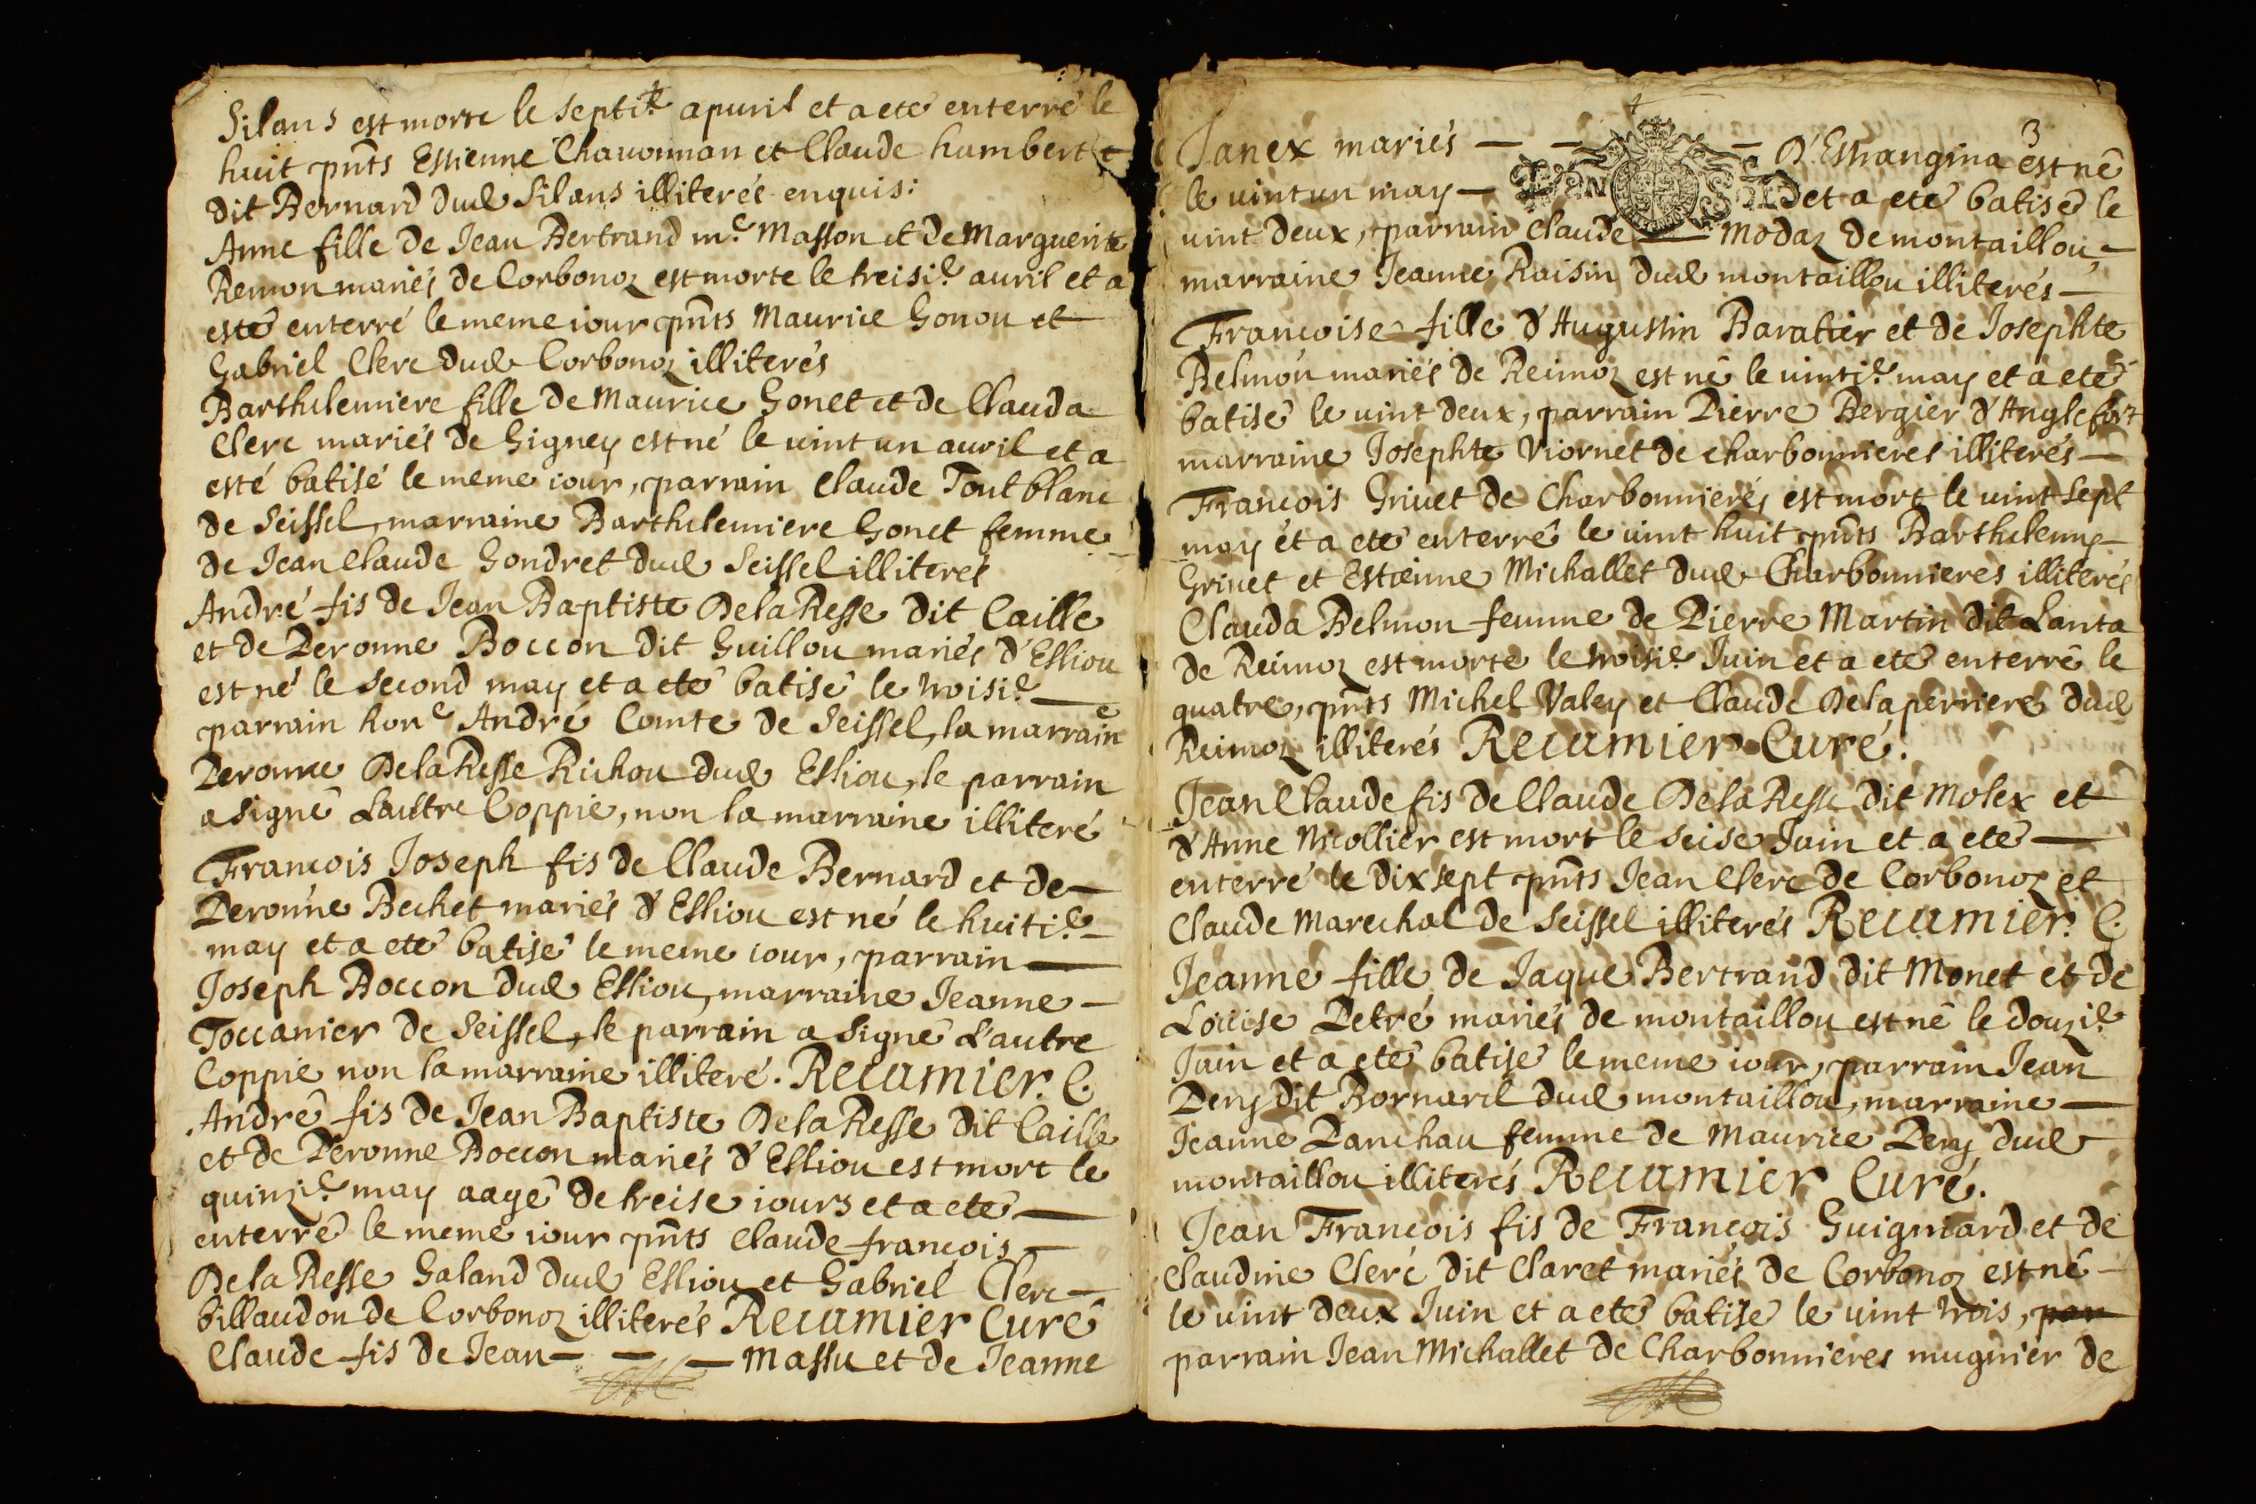 Silans est morte le septi.e apuril et a ete enterré le
huit pnts Estienne Chauonnan et Claude humbert
dit Bernard dud Silans illiterés enquis:
Anne fille de Jean Bertrand m.e Masson et de Marguerite
Remon mariés de Corbonoz est morte le treisi.e auril et a
esté enterré le meme iour pnts Maurice Gonou et
Gabriel Clerc dud Corbonoz illiterés
Barthelemiere fille de Maurice Gonet et de Clauda
Clerc mariés de Gigney est né le uint un auril et a
esté batisé le meme iour, parrain Claude Toutblanc
de Seissel, marraine Barthelemiere Gonet femme
de Jean Claude Gondret dud Seissel illiterés
André fis de Jean Baptiste DelaResse dit Caille
et de Peronne Boccon dit Guillou mariés d'Elliou
est né le second may et a eté batisé le troisi.e
parrain hon.e André Comte de Seissel, la marraine
Peronne DelaResse Richou dud Elliou, le parrain
a signé Laultre Coppie, non la marraine illiteré
Francois Joseph fis de Claude Bernard et de
Peronne Bechet mariés d'Elliou est né le huiti.e
may et a eté batisé le meme iour, parrain
Joseph Boccon dud Elliou, marraine Jeanne
Toccanier de Seissel, le parrain a signé L'autre
Coppie non la marraine illiteré. Recumier. C.
André fis de Jean Baptiste DelaResse dit Caille
et de Peronne Boccon mariés d'Elliou est mort le
quinzi.e may aagé de treise iours et a eté
enterré le meme iour pnts Claude françois
DelaResse Galand dud Elliou et Gabriel Clerc
billaudon de Corbonoz illiterés Recumier Curé
Claude fis de Jean - - - Massu et de Jeanne
3
Janex mariés - - - D'Estrangina est né
le uint un may - et a eté batisé le
uint deux, parrain Claude - Modaz de montaillou
marraine Jeanne Raisin dud montaillou illiterés
Francoise fille d'Augustin Baratier et de Josephte
Belmon mariés de Reimoz est né le uinti.e may et a eté
batisé le uint deux, parrain Pierre Bergier d'Anglefort
marraine Josephte Viornet de charbonnieres illiterés
Francois Griuet de Charbonnierés est mort le uint Sept
may et a eté enterré le uint huit pnts Barthelemy
Griuet et Estienne Michallet dud Charbonnieres illiterés
Clauda Belmon femme de Pierre Martin dit Lanta
de Reimoz est morte le troisi.e Juin et a eté enterré le
quatre, pnts Michel Valey et Claude Delaperriere dud
Reimoz illiterés Recumier Curé.
Jean Claude fis de Claude DelaResse dit Molex et
d'Anne Nicollier est mort le seise Juin et a eté
enterré le dix sept pnts Jean Clerc de Corbonoz et
Claude Marechal de Seissel illiterés Recumier. C.
Jeanne fille de Jaque Bertrand dit Monet et de
Loüise Petré mariés de montaillou est né le douzi.e
Juin et a eté batisé le meme iour, parrain Jean
Pery dit Bornard dud montaillou, marraine
Jeanne Panchau femme de Maurice Pery dud
montaillou illiterés Recumier Curé.
Jean François fis de François Guigniard et de
Claudine Clerc dit Claret mariés de Corbonoz est né
le uint deux Juin et a eté batisé le uint trois, par
parrain Jean Michallet de Charbonnieres mugnier de